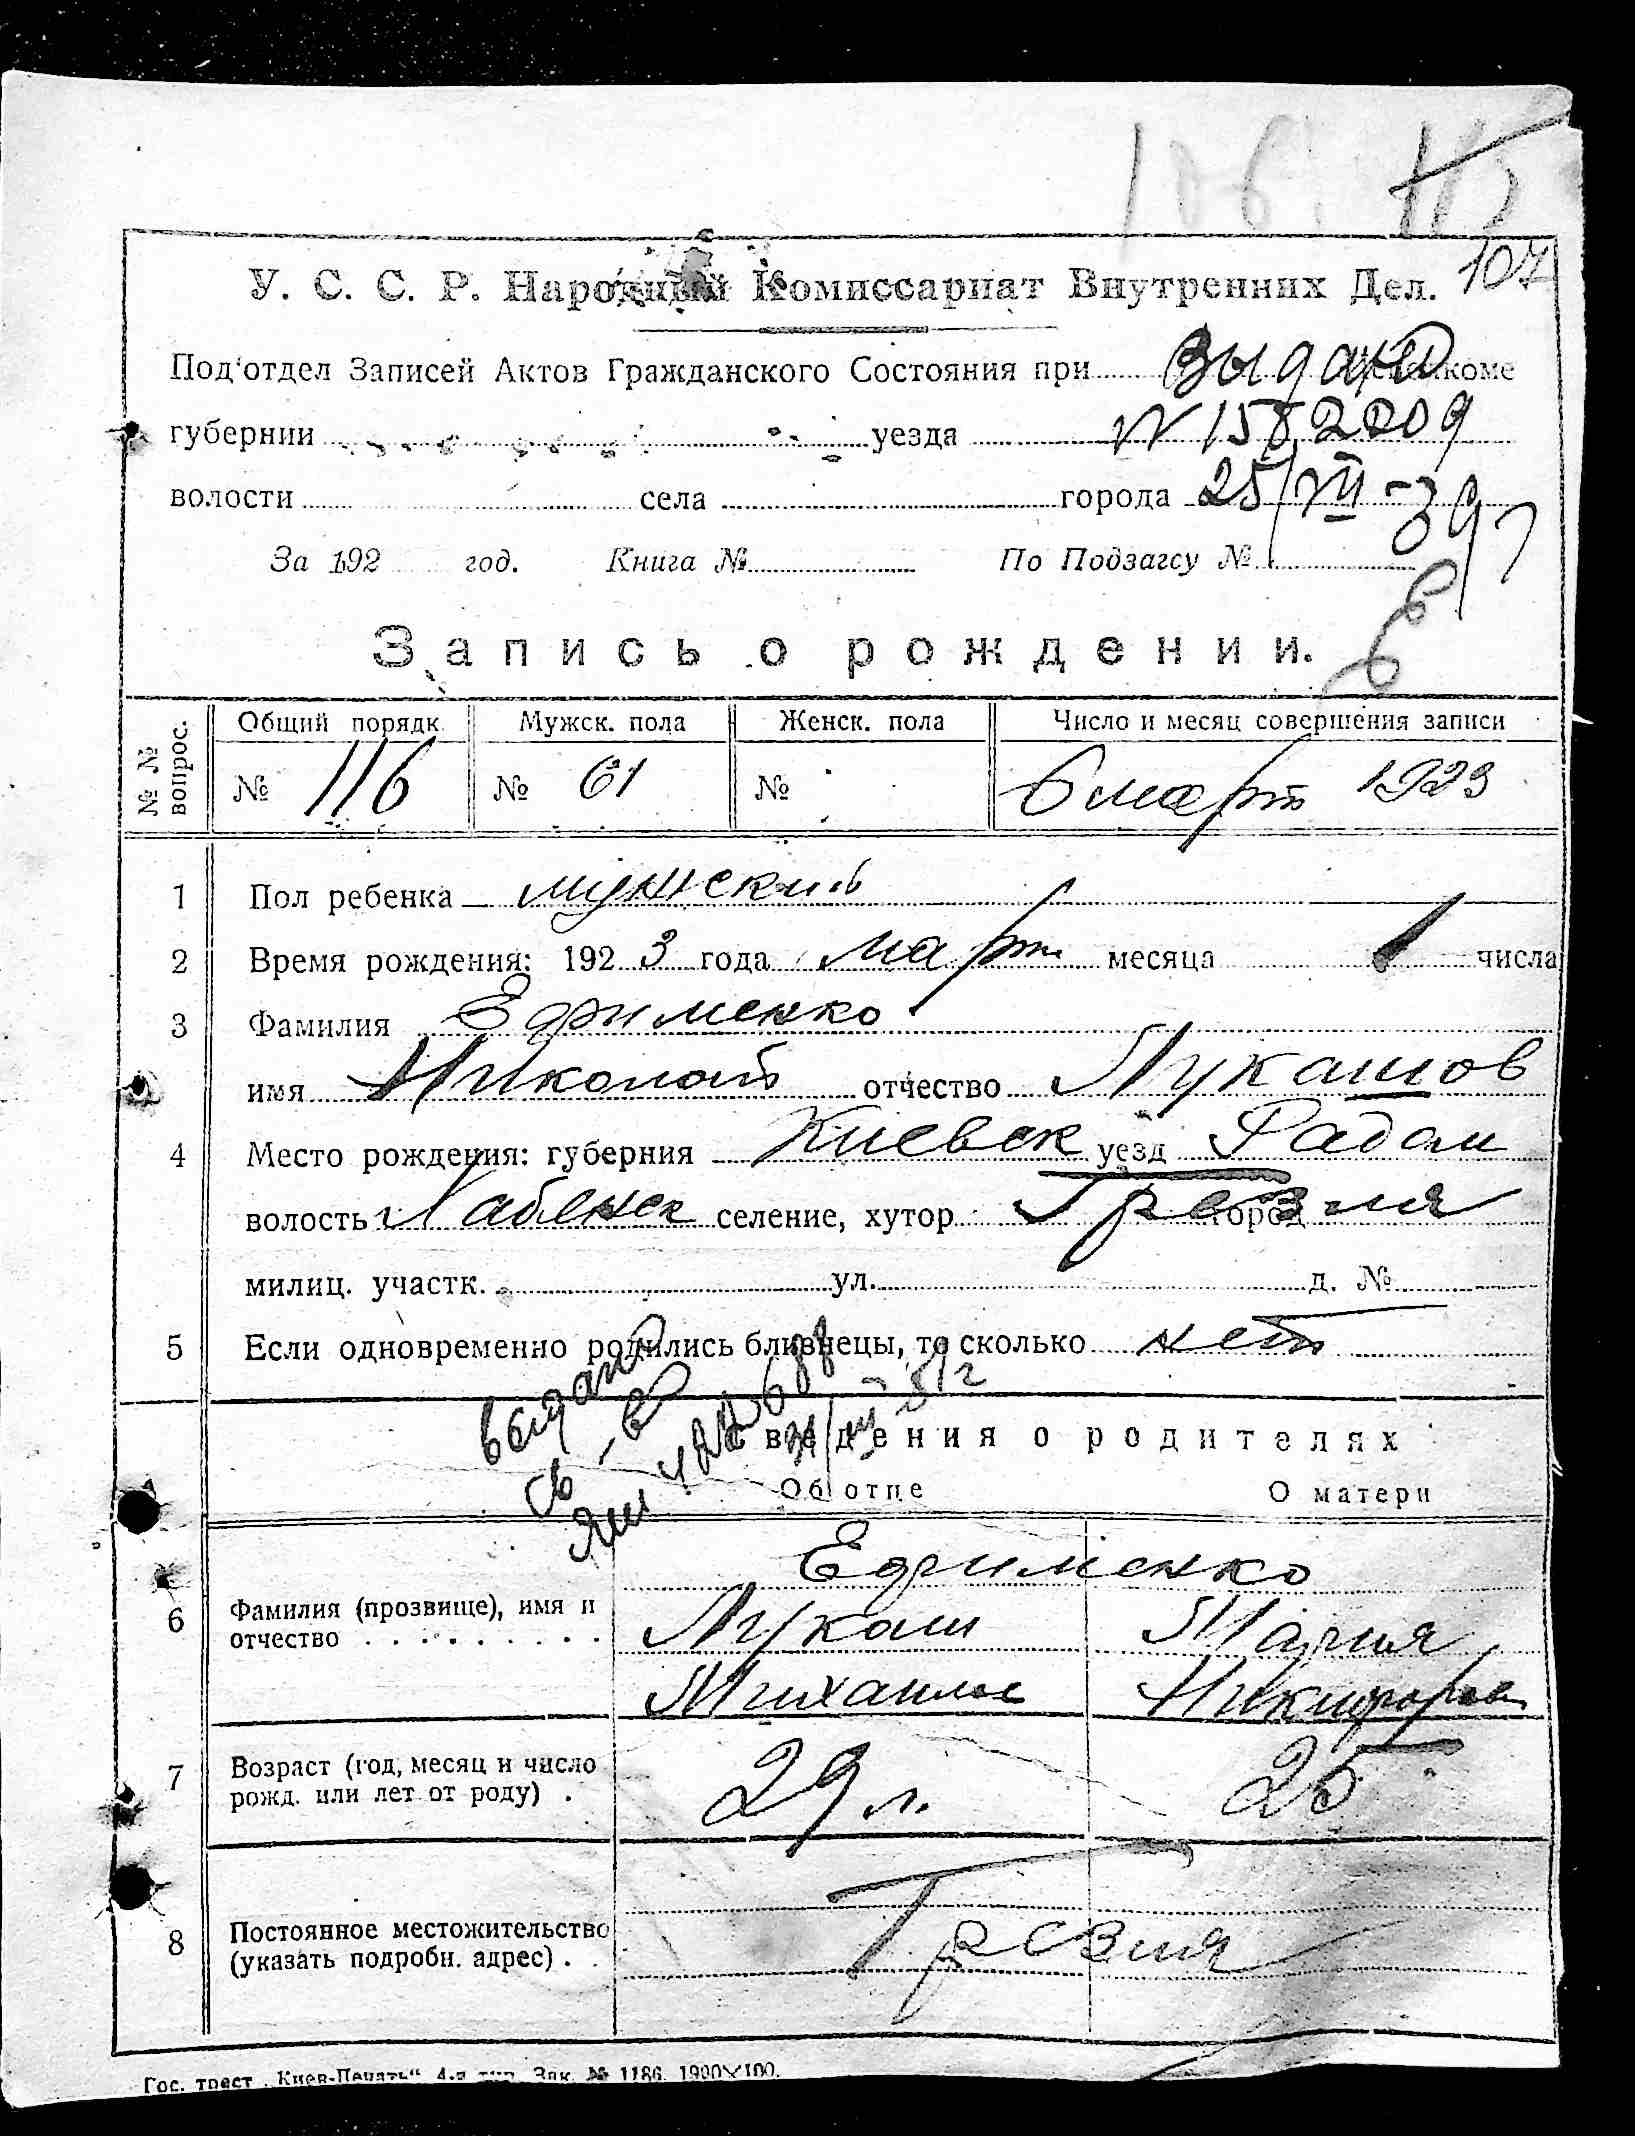 106.
107
У. С. С. Р. Народный Комиссариат Внутренних Дел.
Под'отдел Записей Актов Гражданского Состояния при Выдано коме
губернии уезда
волости села города 25/VII-39
За 192 год. Книга № По Подзагсу №
Запись о рождении.
№ № вопрос. Общий порядк. Мужск. пола Женск. пола Число и месяц совершения записи
№ 116 № 61 № 6 март 1923
1 Пол ребенка мужский
2 Время рождения: 192 3 года март месяца 1 числа
3 Фамилия Ефименко
имя Николай отчество Лукашов
4 Место рождения: губерния Киевск уезд Радом
волость Хабенск селение, хутор Грезля город
милиц. участк. ул. д. №
5 Если одновременно родились близнецы, то сколько нет
выдано
св-во
Сведения о родителях
Об отце О матери
Ефименко
6 Фамилия (прозвище), имя и Лукаш Мария
отчество
Михайлов Никифоров
7 Возраст (год, месяц и число 29 л. 25
рожд. или лет от роду) .
8 Постоянное местожительство Грезля
(указать подробн. адрес) . .
Гос. трест „Киев-Печать“ 4-я тип. Зак. № 1186. 1900×100.